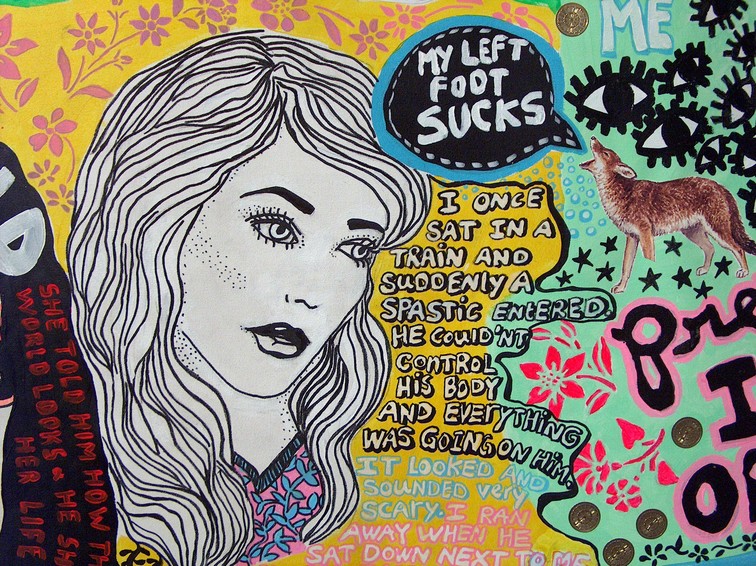 ME
MY LEFT
FOOT
SUCKS
I ONCE
SAT IN A
TRAIN AND
SUDDENLY A
SPASTIC ENTERED.
HE COULD'NT
CONTROL
HIS BODY
AND EVERYTHING
WAS GOING ON HIM.
IT LOOKED AND
SOUNDED very
SCARY. I RAN
AWAY WHEN HE
SAT DOWN NEXT TO ME
SHE TOLD HIM HOW TH
WORLD LOOKS & HE SH
HER LIFE
D
Pre
I